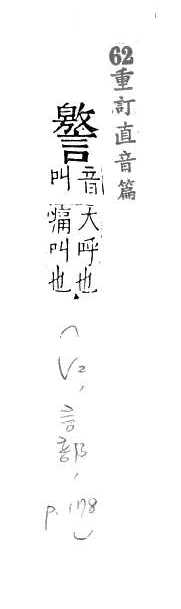 62重訂直音篇
譥
音叫
大呼也
痛叫也
(V2, 言部, p.178)